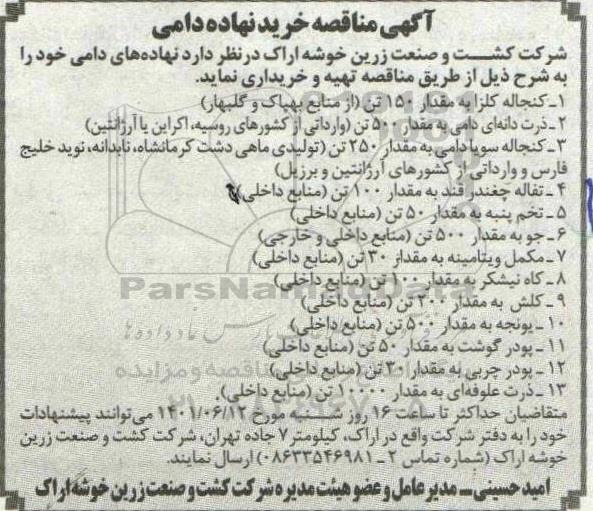 آگهی مناقصه خرید نهاده دامی
شرکت کشت و صنعت زرین خوشه اراک درنظر دارد نهاده‌های دامی خود را
به شرح ذیل از طریق مناقصه تهیه و خریداری نماید.
۱ـ کنجاله کلزا به مقدار ۱۵۰ تن (از منابع بهپاک و گلبهار)
۲ـ ذرت دانه‌ای دامی به مقدار ۵۰۰ تن (وارداتی از کشورهای روسیه، اکراین یا آرژانتین)
۳ـ کنجاله سویا دامی به مقدار ۲۵۰ تن (تولیدی ماهی دشت کرمانشاه، نابدانه، نوید خلیج
فارس و وارداتی از کشورهای آرژانتین و برزیل)
۴ـ تفاله چغندر قند به مقدار ۱۰۰ تن (منابع داخلی)
۵ـ تخم پنبه به مقدار ۵۰ تن (منابع داخلی)
۶ـ جو به مقدار ۵۰۰ تن (منابع داخلی و خارجی)
۷ـ مکمل ویتامینه به مقدار ۳۰ تن (منابع داخلی)
۸ـ کاه نیشکر به مقدار ۱۰۰ تن (منابع داخلی)
ParsNamadData
۹ـ کلش به مقدار ۲۰۰ تن (منابع داخلی)
۱۰ـ یونجه به مقدار ۵۰۰ تن (منابع داخلی)
۱۱ـ پودر گوشت به مقدار ۵۰ تن (منابع داخلی)
۱۲ـ پودر چربی به مقدار ۳۰ تن (منابع داخلی)
۱۳ـ ذرت علوفه‌ای به مقدار ۱۰۰۰۰ تن (منابع داخلی).
متقاضیان حداکثر تا ساعت ۱۶ روز شنبه مورخ ۱۴۰۱/۰۶/۱۲ می‌توانند پیشنهادات
خود را به دفتر شرکت واقع در اراک، کیلومتر ۷ جاده تهران، شرکت کشت و صنعت زرین
خوشه اراک (شماره تماس ۲ـ۰۸۶۳۳۵۴۶۹۸۱) ارسال نمایند.
امید حسینی ـ مدیرعامل و عضو هیئت مدیره شرکت کشت و صنعت زرین خوشه اراک